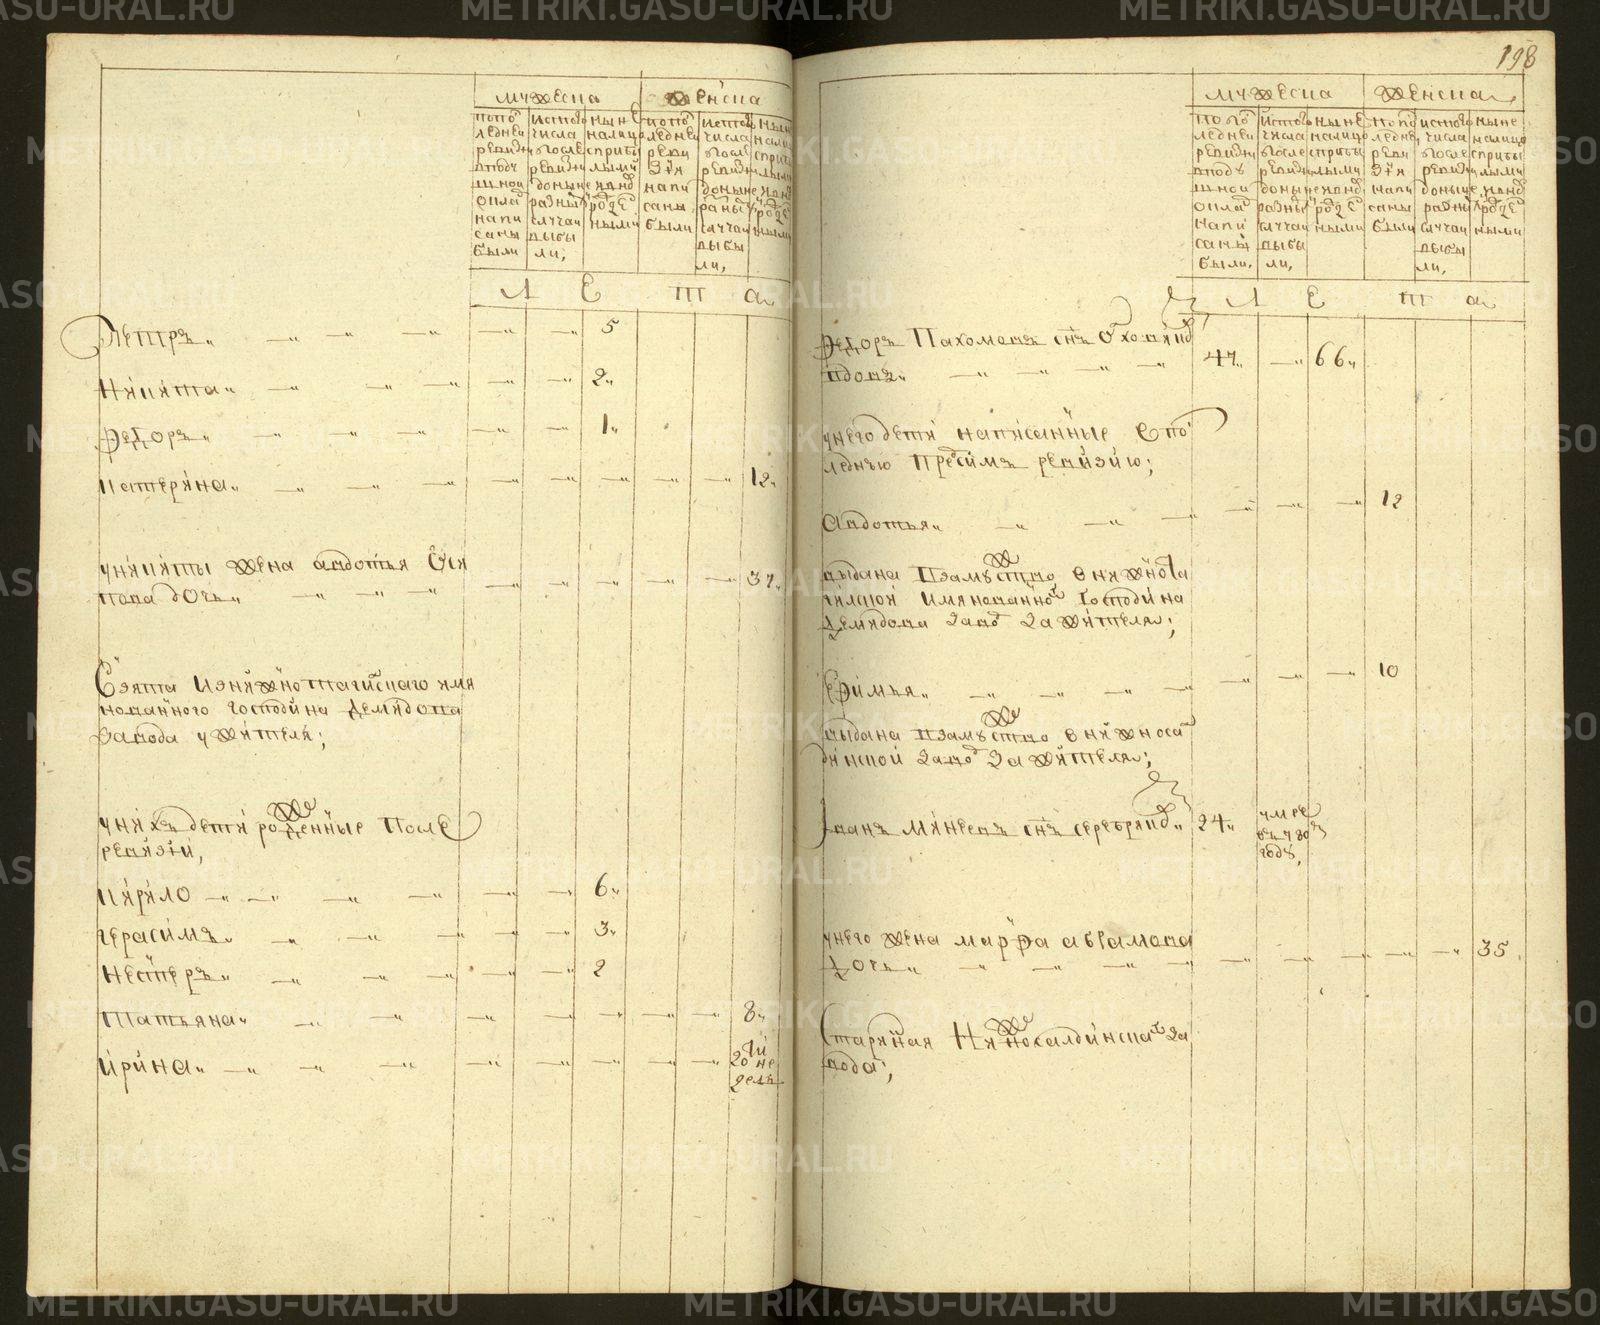 198
мужеска женска
попо
ледней
ревизи
вподу
шной
окла
напи
саны
были
исто
числа
после
ревизи
доныне
разны
случаи
выбы
ли,
ныне
налицо
сприбы
лыми
явно
рожде
ными
попо
ледней
реви
зiя
напи
саны
были
исто
числа
после
ревизи
доныне
разны
случаи
выбы
ли,
Л Е Т а
Петръ 5
никита 2
Федоръ 1
катерина 12
уникиты жена авдотья Оси
пова дочь 37
Сзята изнижнотагилскаго имя
нованного господина демидова
завода ужителя;
унихъ дети рожденные После
ревизiи,
кирило 6
герасимъ 3
нестеръ 2
татьяна 8
ирина 20 не
делъ
мужеска женска
попо
ледней
ревизи
вподу
шной
окла
напи
саны
были,
исто
числа
после
ревизи
доныне
разны
случаи
выбы
ли,
ныне
налицо
сприбы
лыми
явно
рожде
ными
попо
ледней
реви
зiя
напи
саны
были
исто
числа
после
ревизи
доныне
разны
случаи
выбы
ли,
ныне
налицо
сприбы
лыми
явно
рожде
ными
Л Е т а
Федоръ Пахомовъ снъ
47 66
унего дети написанные в по
леднюю пресимъ ревизию;
Авдотья 12
выдана взамуство в нижнота
гилской имянованно Господина
демидова заво за жителя;
Ефимья 10
выдана взамуство в нижноса
динской заво за жителя;
Iванъ Минеевъ снъ серебряко 24 умре
въ 780
году,
унего жена марфа авramова
дочь 35
Стариная Нижносалдинска за
вода;
METRIKI.GASO-URAL.RU